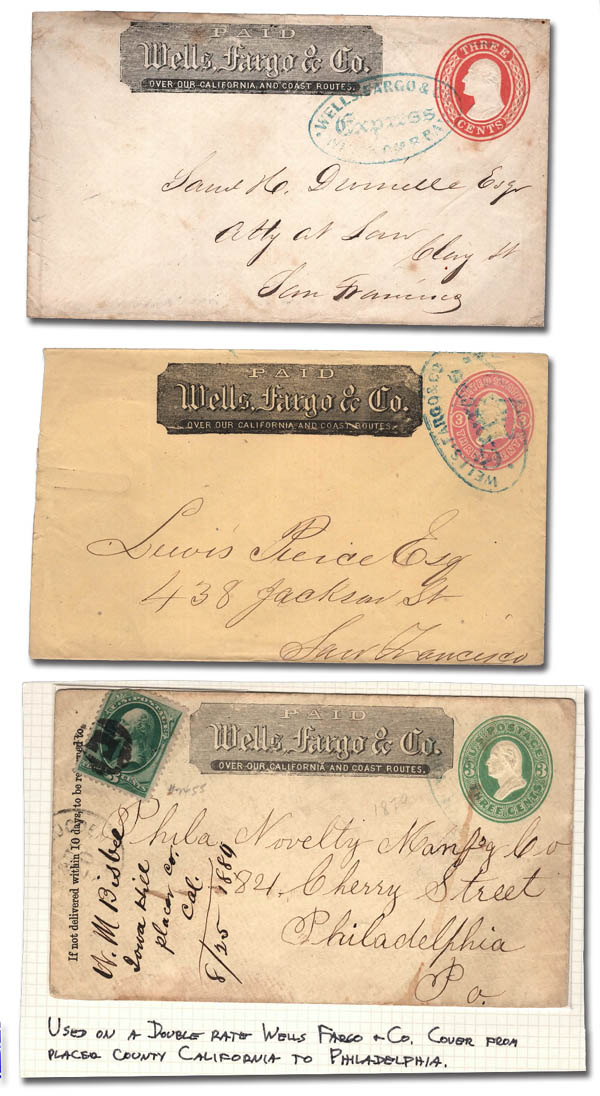 PAID
Wells, Fargo & Co.
OVER OUR CALIFORNIA AND COAST ROUTES.
WELLS, FARGO &
Express
THREE
CENTS
Saml H. Dwinelle Esqr
Atty at Law
Clay St
San Francisco
PAID
Wells, Fargo & Co.
OVER OUR CALIFORNIA AND COAST ROUTES.
WELLS, FARGO & CO
3
3
Lewis Peirce Esq
438 Jackson St
San Francisco
PAID
Wells, Fargo & Co.
OVER OUR CALIFORNIA AND COAST ROUTES.
U.S. POSTAGE
3
3
THREE CENTS
U.S. POSTAGE
If not delivered within 10 days, to be returned to
W. M Bisbee
Iowa Hill
placer co.
Cal.
8/25 1884
Phila Novelty Manfg Co
821 Cherry Street
Philadelphia
Pa.
USED ON A DOUBLE RATE WELLS FARGO & CO. COVER FROM
PLACER COUNTY CALIFORNIA TO PHILADELPHIA.